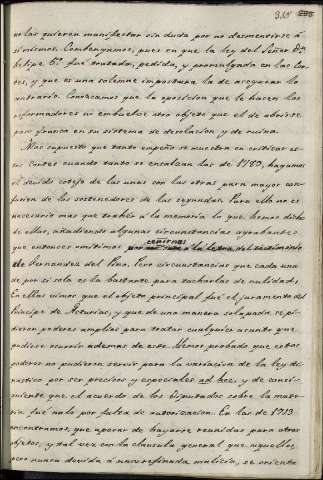 no las quieren manifestar sin duda por no desmentirse á
sí mismos. Convengamos, pues en que la ley del Señor Dn.
Felipe 5º. fué tratada, pedida, y promulgada en las Cor-
tes, y que es una solemne impostura la de asegurar lo
contrario. Conozcamos que la oposicion que le hacen los
reformadores no embuelve otro objeto que el de abrirse
paso franco en su sistema de desolacion y de ruina.
Mas supuesto que tanto empeño se muestra en criticar es-
tas Cortes cuando tanto se ensalzan las de 1789, hagamos
el devido cotejo de las unas con las otras para mayor con-
fusion de los sostenedores de las segundas. Para ello no es
necesario mas que traher á la memoria lo que hemos dicho
de ellas, añadiendo algunas circunstancias
que entonces omitimos á la letra del testimonio
de Fernandez del Pino. Pero circunstancias que cada una
de por sí sola es la bastante para tacharlas de nulidad.
En ellas vimos que el objeto principal fué el juramento del
Principe de Asturias, y que de una manera solapada se pi-
dieron poderes amplios para tratar cualquier asunto que
pudiese ocurrir ademas de este. Hemos probado que estos
poderes no pudieron servir para la variacion de la ley di-
nastica por ser precisos y especiales ad hoc, y de consi-
guiente que el acuerdo de los Diputados sobre la mate-
ria fué nulo por falta de autorizacion. En las de 1713
encontramos, que apesar de hayarse reunidas para otros
objetos, y tal vez con la clausula general que aquellos
pero nunca devida á una refinada malicia, se